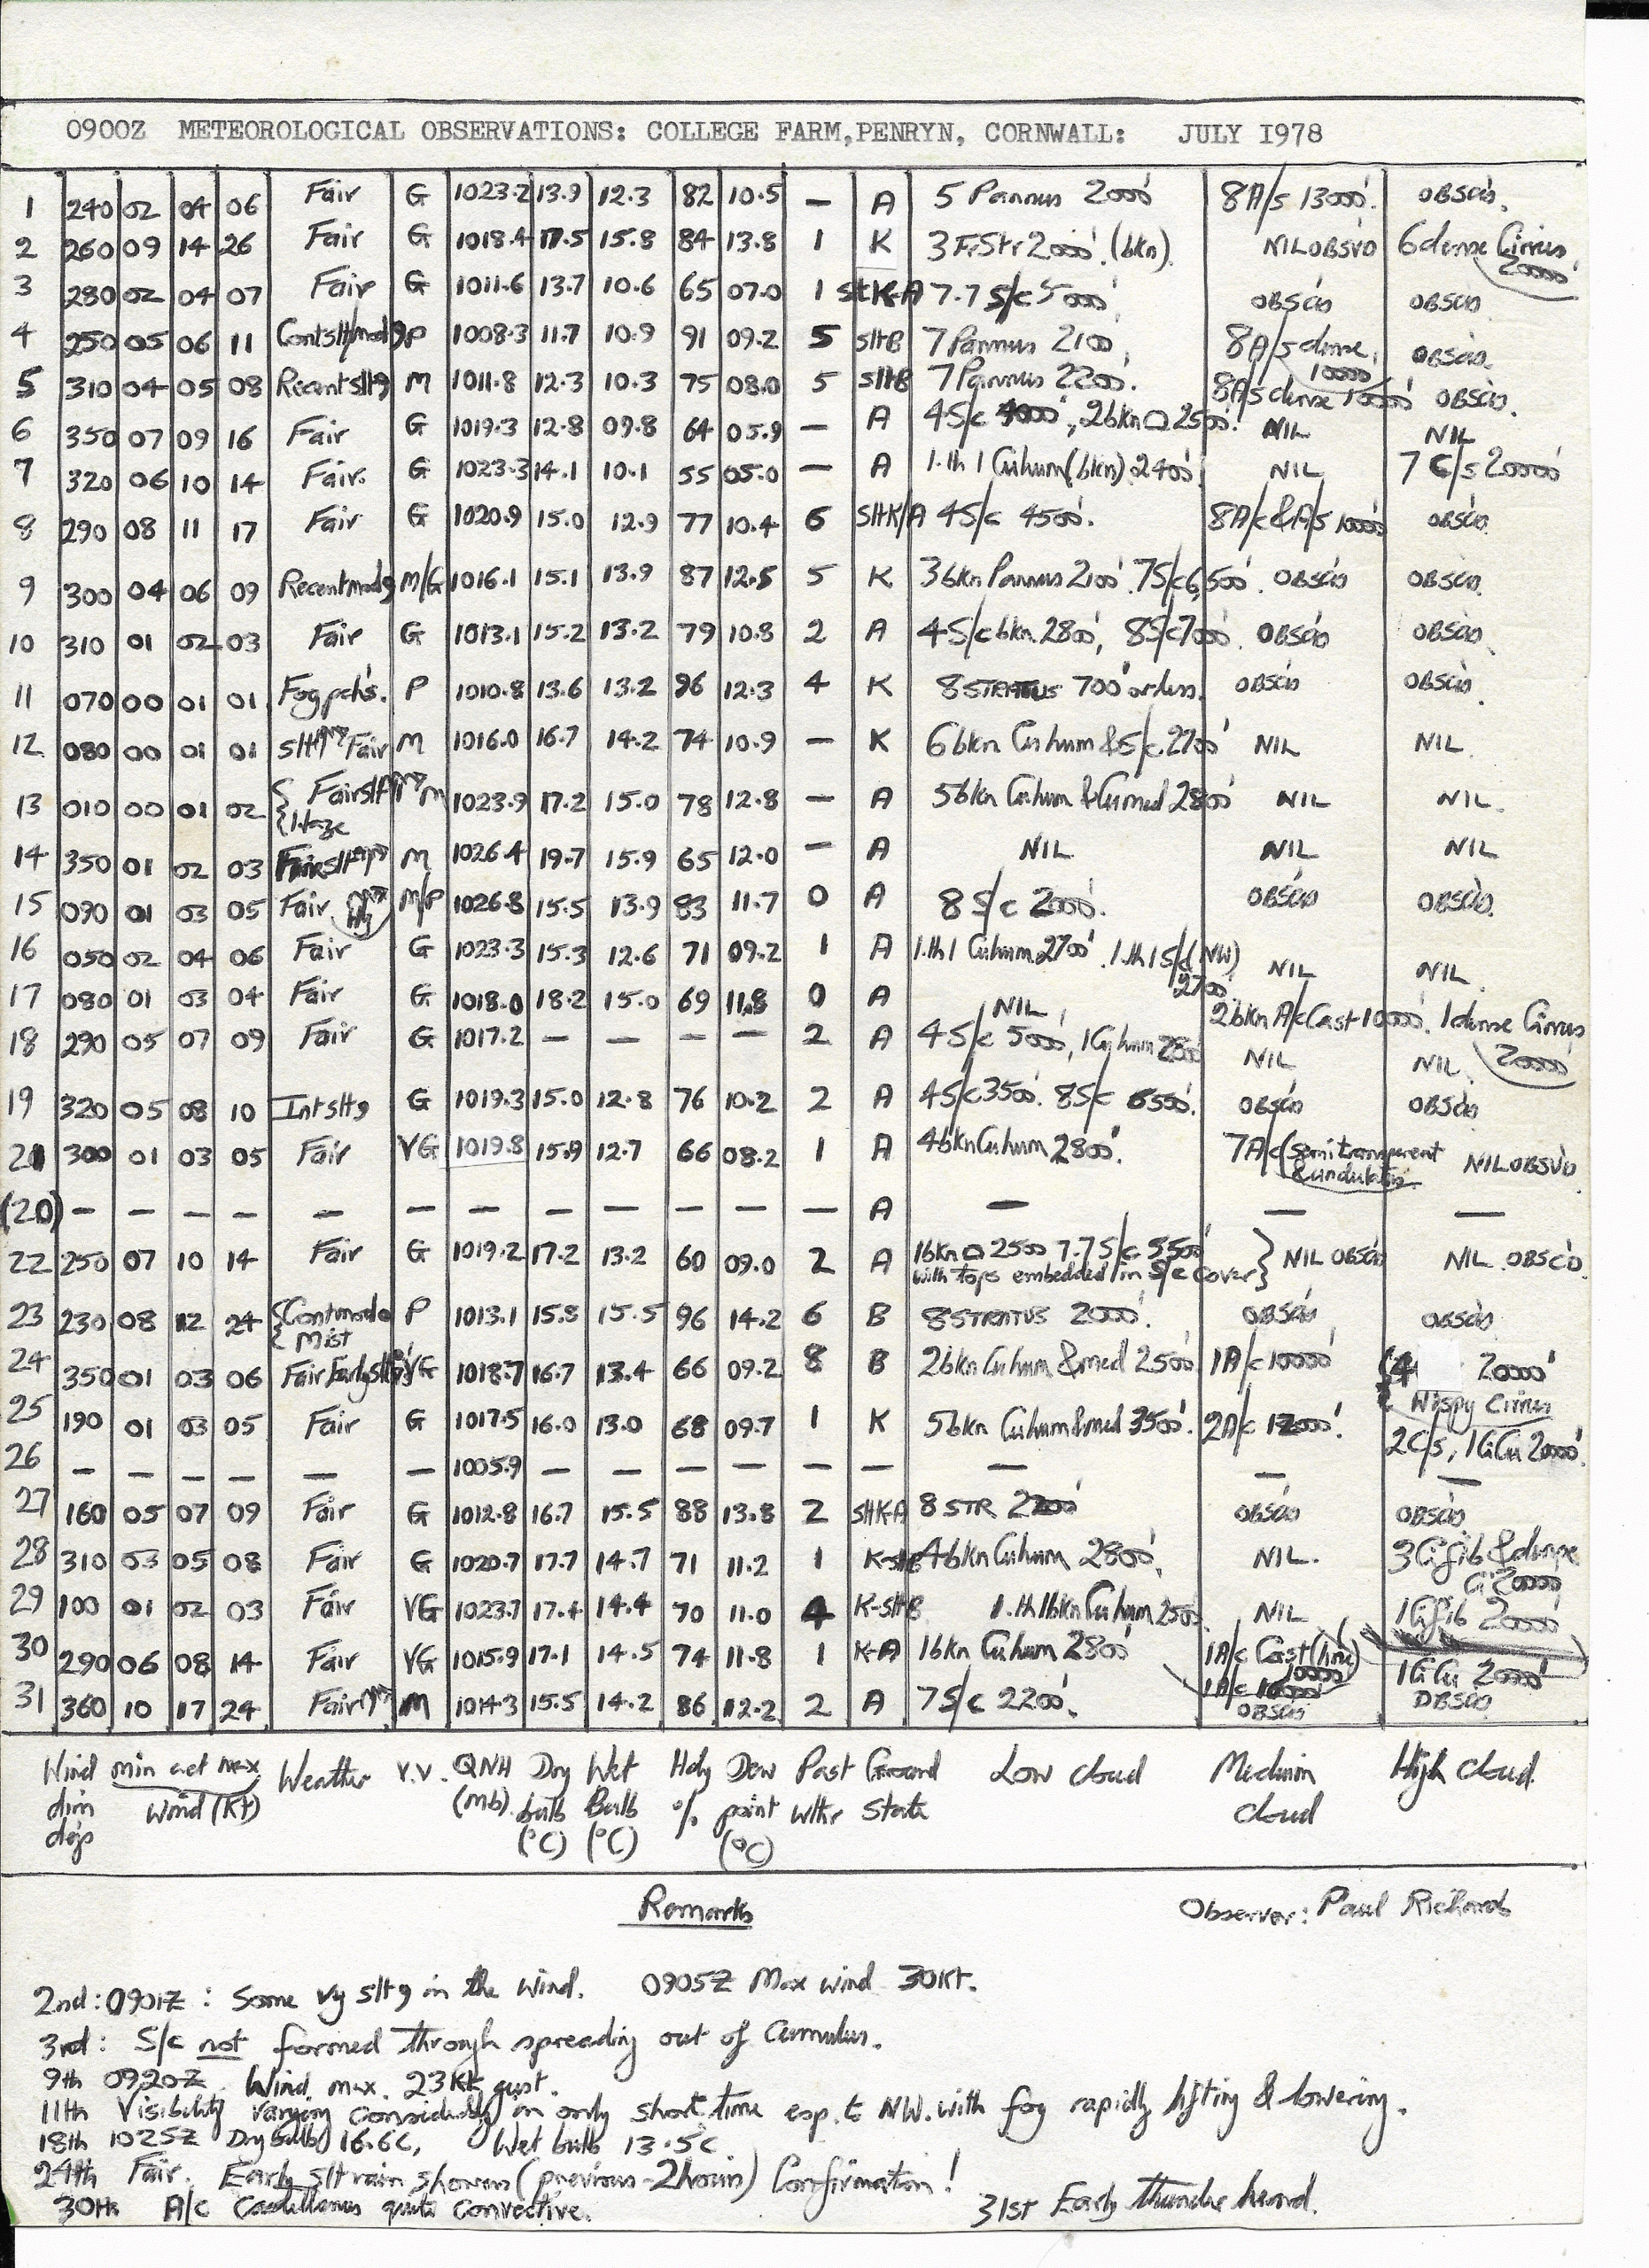 0900Z METEOROLOGICAL OBSERVATIONS: COLLEGE FARM,PENRYN, CORNWALL: JULY 1978
1 240 02 04 06 Fair G 1023.2 13.9 12.3 82 10.5 — A 5 Pannus 2000' 8A/s 13000'. OBSCD.
2 260 09 14 26 Fair G 1018.4 17.5 15.8 84 13.8 1 K 3 FrStr 2000'. (bkn). NIL OBSVD 6 dense Cirrus 20000'
3 280 02 04 07 Fair G 1011.6 13.7 10.6 65 07.0 1 sltK-A 7.7 S/c 5000' OBSCD OBSCD
4 250 05 06 11 P 1008.3 11.7 10.9 91 09.2 5 sltB 7 Pannus 2100' 8A/s dense, 10000' OBSCD.
5 310 04 05 08 Recent slt9 M 1011.8 12.3 10.3 75 08.0 5 sltB 7 Pannus 2200'. 8A/s dense 10000' OBSCD.
6 350 07 09 16 Fair G 1019.3 12.8 09.8 64 05.9 — A 4S/c 4000', 2bkn 2500'. NIL NIL
7 320 06 10 14 Fair. G 1023.3 14.1 10.1 55 05.0 — A 1.th 1 Cuhum (bkn) 2400' NIL 7 C/s 20000'
8 290 08 11 17 Fair G 1020.9 15.0 12.9 77 10.4 6 SltK/A 4S/c 4500'. 8A/c & A/s 10000' OBSCD.
9 300 04 06 09 Recent mod9 M/G 1016.1 15.1 13.9 87 12.5 5 K 3bkn Pannus 2100'. 7S/c 6,500'. OBSCD OBSCD.
10 310 01 02 03 Fair G 1013.1 15.2 13.2 79 10.8 2 A 4S/c bkn 2800', 8S/c 7000'. OBSCD OBSCD.
11 070 00 01 01 Fog pchs. P 1010.8 13.6 13.2 96 12.3 4 K 8 STRATUS 700' or less. OBSCD OBSCD.
12 080 00 01 01 slt Fair M 1016.0 16.7 14.2 74 10.9 — K 6 bkn Cu hum & S/c 2700' NIL NIL.
13 010 00 01 02 Fair slt Haze M 1023.9 17.2 15.0 78 12.8 — A 5bkn Cuhum & Cumed 2800' NIL NIL.
14 350 01 02 03 Fair slt M 1026.4 19.7 15.9 65 12.0 — A NIL NIL NIL
15 090 01 03 05 Fair M/P 1026.8 15.5 13.9 83 11.7 0 A 8 S/c 2000'. OBSCD OBSCD.
16 050 02 04 06 Fair G 1023.3 15.3 12.6 71 09.2 1 A 1.th 1 Cuhum 2700'. 1.th 1 S/c (NW) 2700' NIL NIL.
17 080 01 03 04 Fair G 1018.0 18.2 15.0 69 11.8 0 A NIL 2bkn A/c Cast 10000'. 1 dense Cirrus 20000'
18 290 05 07 09 Fair G 1017.2 — — — — 2 A 4S/c 5000', 1Cuhum 2800' NIL NIL.
19 320 05 08 10 Int slt9 G 1019.3 15.0 12.8 76 10.2 2 A 4S/c 3500'. 8S/c 6550'. OBSCD OBSCD
21 300 01 03 05 Fair VG 1019.8 15.9 12.7 66 08.2 1 A 4bkn Cuhum 2800'. 7A/c (semi transparent & undulatus NIL OBSVD
(20) — — — — — — — — — — — — A — — —
22 250 07 10 14 Fair G 1019.2 17.2 13.2 60 09.0 2 A 1bkn 2500 7.7 S/c 5500' with tops embedded in S/c cover } NIL OBSCD NIL OBSCD
23 230 08 12 24 Mist P 1013.1 15.8 15.5 96 14.2 6 B 8 STRATUS 2000'. OBSCD OBSCD
24 350 01 03 06 Fair Early slt VG 1018.7 16.7 13.4 66 09.2 8 B 2bkn Cuhum & med 2500' 1A/c 10000' (4 20000' Wispy Cirrus
25 190 01 03 05 Fair G 1017.5 16.0 13.0 68 09.7 1 K 5bkn Cuhum & med 3500'. 2A/c 12000'. 2C/s, 1CiCu 20000'.
26 — — — — — — 1005.9 — — — — — — — — —
27 160 05 07 09 Fair G 1012.8 16.7 15.5 88 13.8 2 SltK-A 8 STR 2200' OBSCD OBSCD
28 310 03 05 08 Fair G 1020.7 17.7 14.7 71 11.2 1 K-sltB 4bkn Cuhum 2800' NIL. 3 Cifib & dense Ci 20000
29 100 01 02 03 Fair VG 1023.7 17.4 14.4 70 11.0 4 K-sltB 1.th 1bkn Cu hum 2500' NIL 1 Cifib 20000'
30 290 06 08 14 Fair VG 1015.9 17.1 14.5 74 11.8 1 K-A 1bkn Cuhum 2800' 1A/c Cast (line) 10000' 1A/c 10000' 1CiCu 20000'
31 360 10 17 24 Fair M 1014.3 15.5 14.2 86 12.2 2 A 7S/c 2200'. OBSCD OBSCD
Wind dirn degs min act max wind (Kt) Weather V.V. QNH (mb). Dry bulb (°C) Wet Bulb (°C) Hdy % Dew point (°C) Past wthr Ground State Low cloud Medium cloud High cloud.
Remarks
Observer: Paul Richards
2nd: 0901Z: Some vy slt 9 in the wind. 0905Z Max wind 30Kt.
3rd: S/c not formed through spreading out of Cumulus.
9th 0920Z. Wind max. 23Kt gust.
11th Visibility varying considerably in only short time esp. to NW. with fog rapidly lifting & lowering.
18th 1025Z Dry bulb 16.6C, Wet bulb 13.5C
24th Fair. Early slt rain showers (previous - 2 hours) Confirmation!
30th A/c Castellanus quite convective.
31st Early thunder heard.